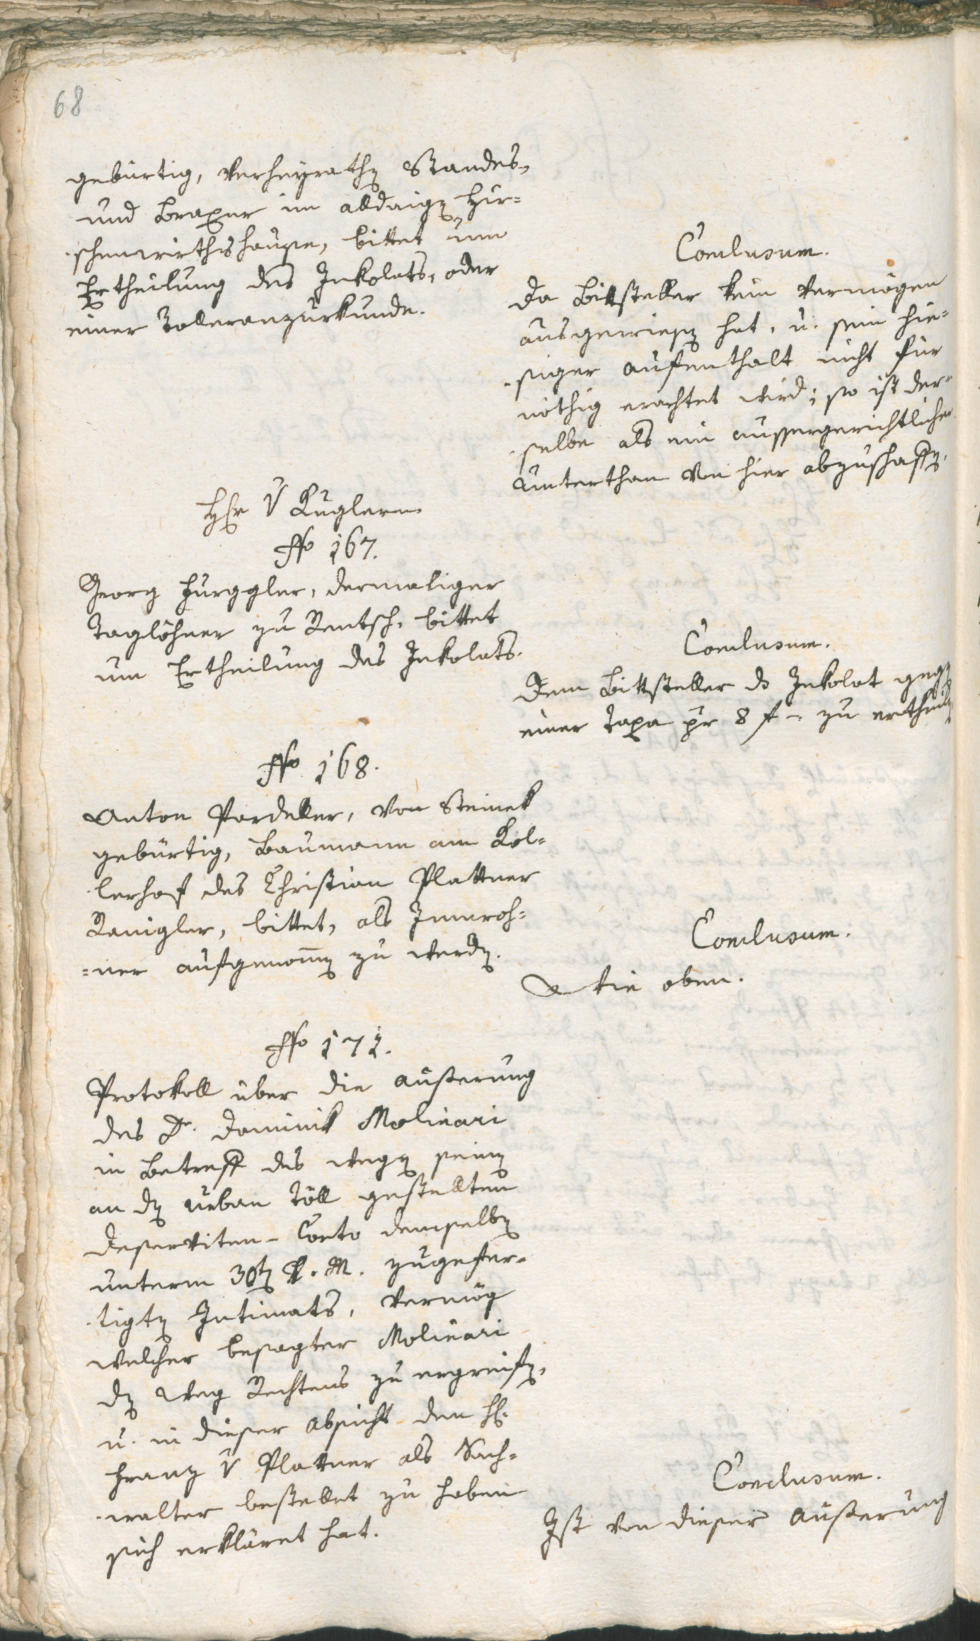 68
gebürtig, verheyrathet Standes,
und Braxer im alldaigen Hir-
schenwirthshause, bittet um
Ertheilung des Inkolats, oder
einer Tolleranzurkunde.
Conclusum.
Da Bittsteller kein Vermögen
ausgewiesen hat, u. sein hie-
siger Aufenthalt nicht für
nöthig erachtet wird; so ist der-
selbe als ein aussergerichtlicher
Unterthan von hier abzuschaffen.
Hr v Kuglern
No 167.
Georg Hurggler, dermaliger
Taglöhner zu Rentsch, bittet
um Ertheilung des Inkolats.
Conclusum.
Dem Bittsteller ds Inkolat gegen
einer Taxa pr 8 f – zu ertheilen
No 168.
Anton Pardeller, von Steinek
gebürtig, Baumann am Kol-
lerhof des Christian Plattner
Ranigler, bittet, als Innwoh-
ner aufgenomen zu werden.
Conclusum.
Wie oben.
No 171.
Protokoll über die Äußerung
des Dr. Dominik Molinari
in Betreff des wegen seinen
an den Urban Töll gestellten
Deserviten-Conto demselben
unterm 30ten v. M. zugefer-
tigten Intimats, vermög
welcher besagter Molinari
den Weg Rechtens zu ergreifen,
u. in dieser Absicht den H.
Franz v Plattner als Sach-
walter bestellet zu haben
sich erkläret hat.
Conclusum.
Ist von dieser Äußerung